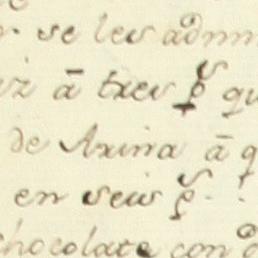 se les admin
ā tres p̄ qu
de Arina ā q
en seis p̄
chocolate con